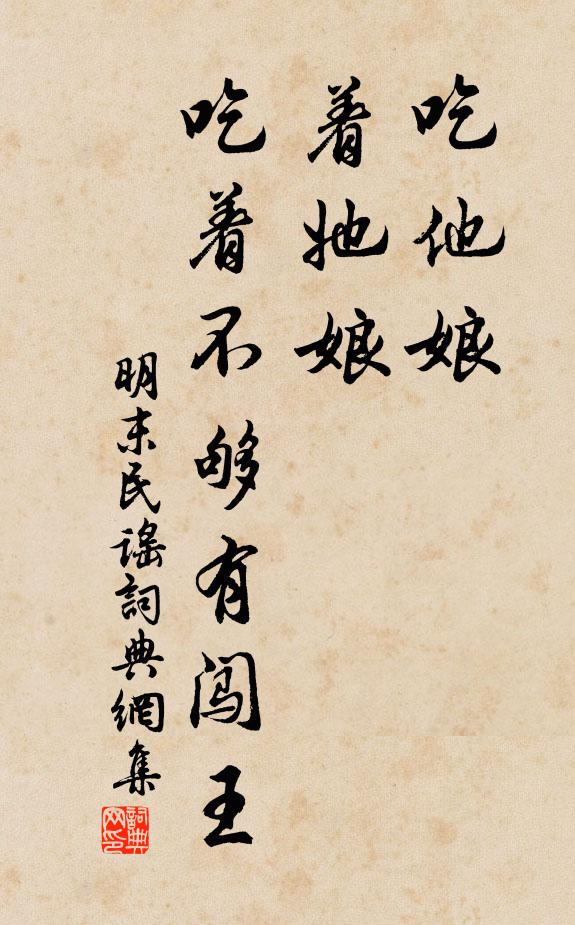 吃他娘
着她娘
吃着不够有闯王
明末民谣詞典網集
詞典
网印